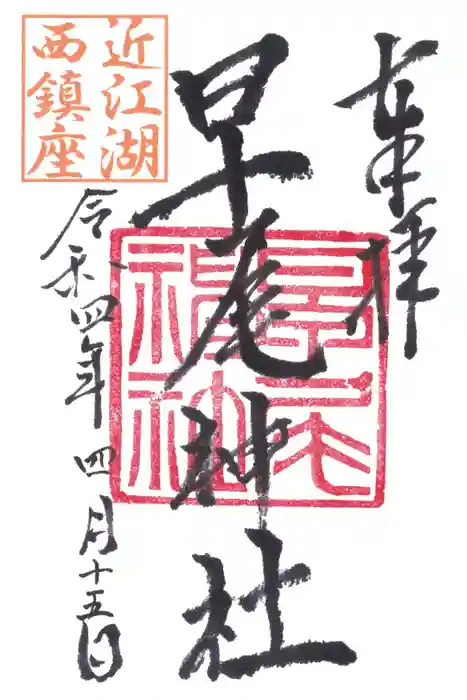 奉拝
早尾神社
近江湖
西鎮座
令和四年 四月十五日